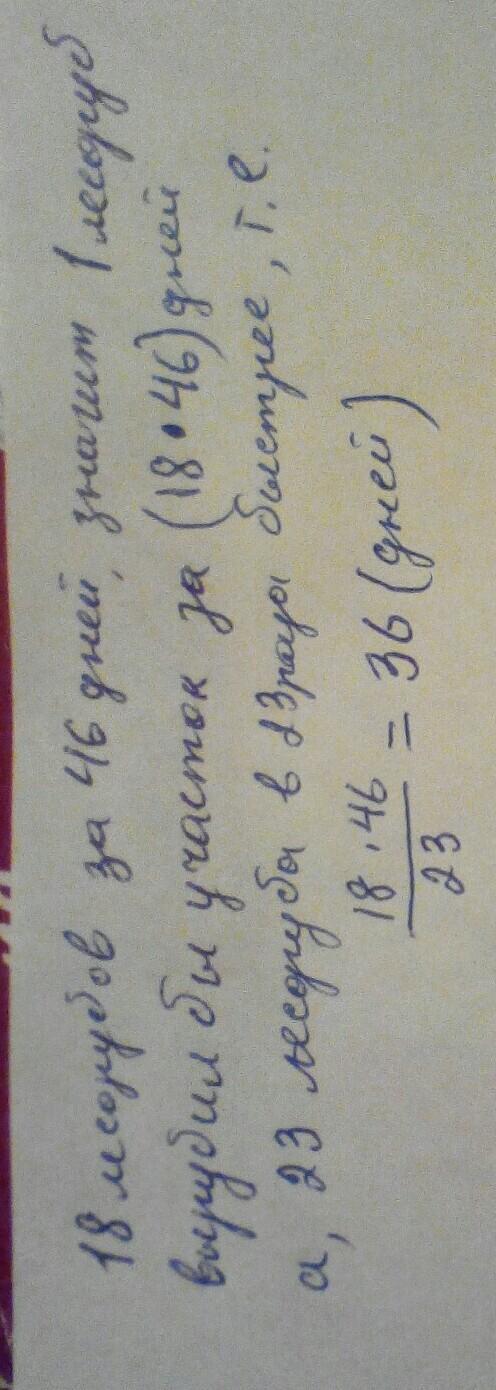 18 лесорубов за 46 дней, значит 1 лесоруб
вырубил бы участок за (18 • 46) дней
а, 23 лесоруба в 23 раза быстрее, т. е.
18 · 46
23
= 36 (дней)